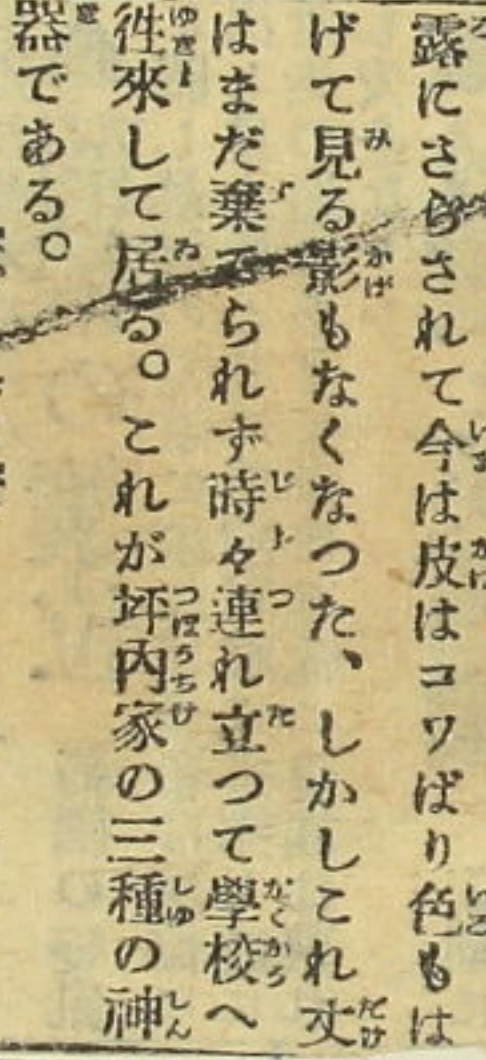 露にさらされて今は皮はコワばり色もは
げて見る影もなくなつた、しかしこれ丈
はまだ棄てられず時々連れ立つて學校へ
徃來して居る。これが坪內家の三種の神
器である。